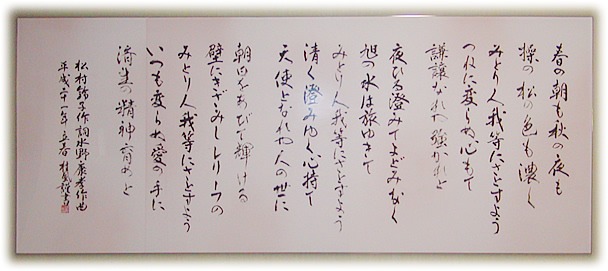 春の朝も秋の夜も
操の松の色も濃く
みどり人我等にさとすよう
つねに変らぬ心もて
謙譲なれや強かれと
夜ひる澄みてよどみなく
旭の水は旅ゆきて
みどり人我等にさとすよう
清く澄みゆく心持て
天使となれや人の世に
朝日をあびて輝ける
壁にきざみしレリーフの
みどり人我等にさとすよう
いつも変らぬ愛の手に
済生の精神育めと
作詞水野康孝作曲
平成二十一年立春